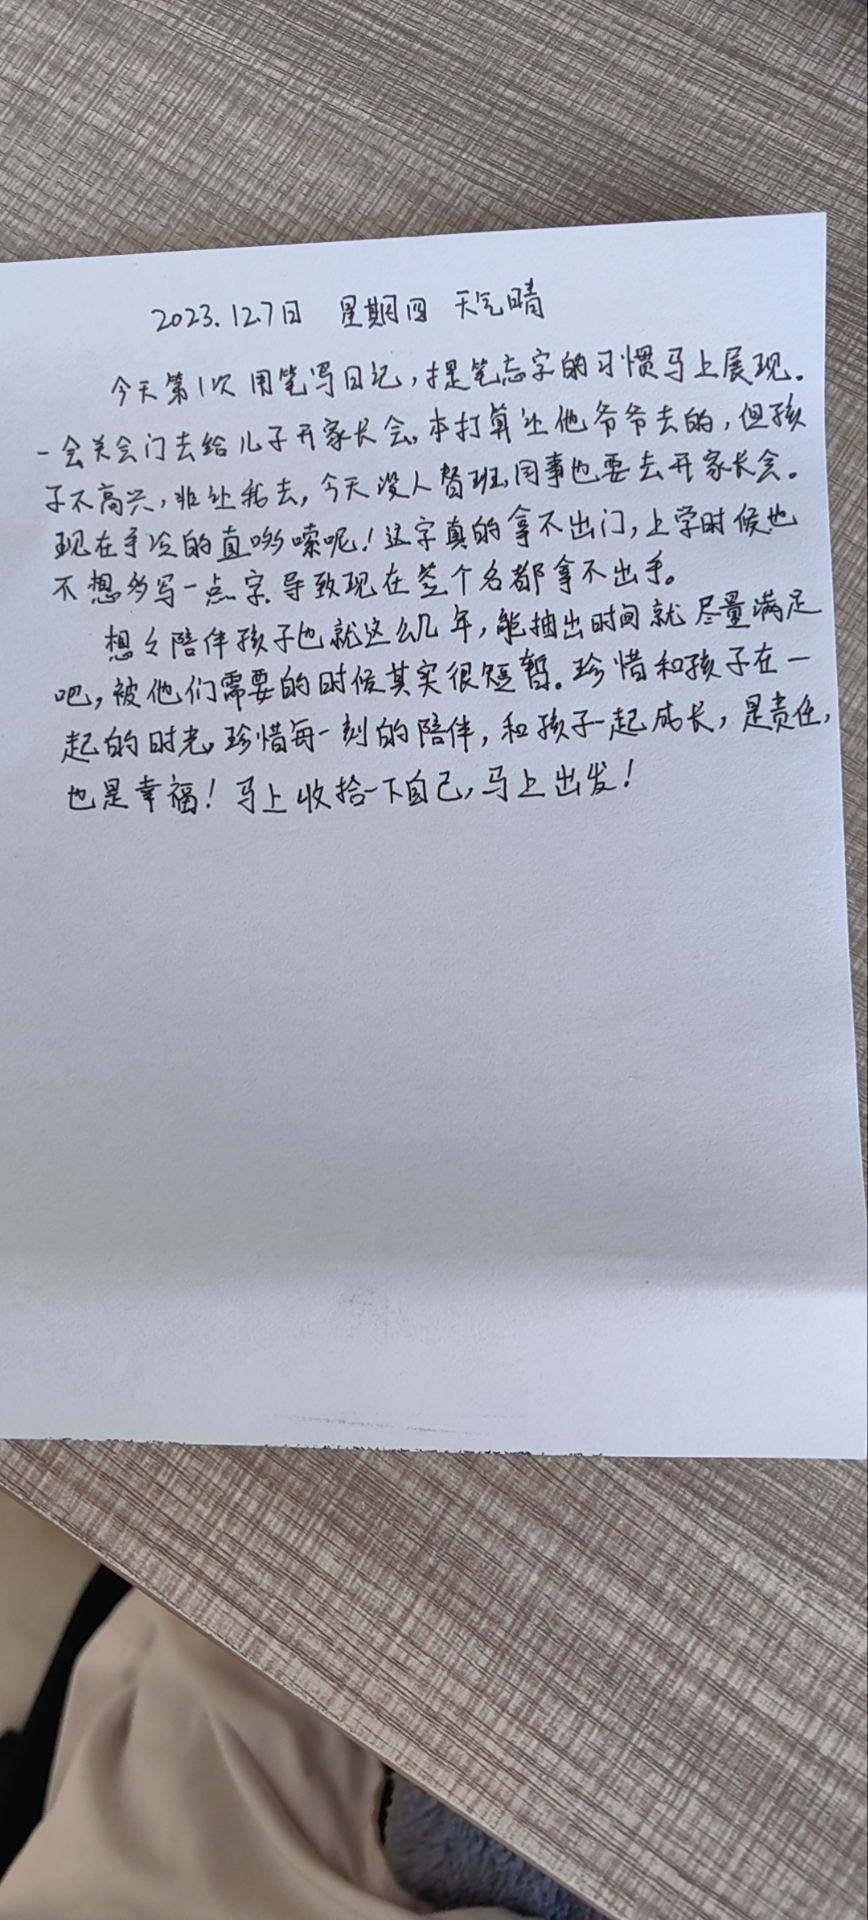 2023.12.7日 星期四 天气晴
今天第1次用笔写日记，提笔忘字的习惯马上展现。
一会关会门去给儿子开家长会。本打算让他爷爷去的，但孩
子不高兴，非让我去，今天没人替班，同事也要去开家长会。
现在手冷的直哆嗦呢！这字真的拿不出门，上学时候也
不想多写一点字，导致现在签个名都拿不出手。
想々陪伴孩子也就这么几年，能抽出时间就尽量满足
吧，被他们需要的时候其实很短暂。珍惜和孩子在一
起的时光，珍惜每一刻的陪伴，和孩子一起成长，是责任，
也是幸福！马上收拾一下自己，马上出发！